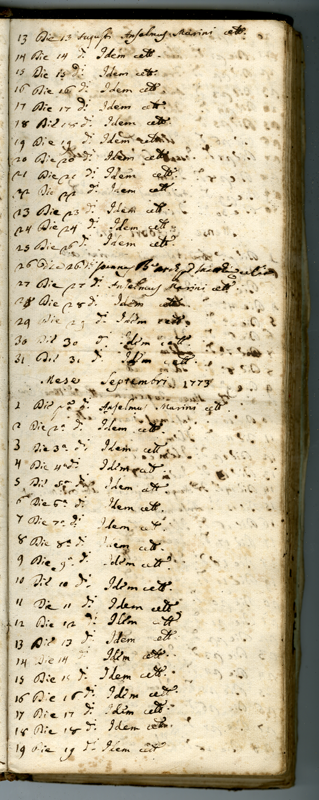 13 Die 13 Augusti Anselmus Marini cett.
14 Die 14 di Idem cett.
15 Die 15 di Idem cett.
16 Die 16 di Idem cett.
17 Die 17 di Idem cett.
18 Die 18 di Idem cett.
19 Die 19 di Idem cett.
20 Die 20 di Idem cett.
21 Die 21 di Idem cett.
22 Die 22 di Idem cett.
23 Die 23 di Idem cett.
24 Die 24 di Idem cett.
25 Die 25 di Idem cett.
26 Die 26 di Joannes
27 Die 27 di Anselmus Marini cett.
28 Die 28 di Idem cett.
29 Die 29 di Idem cett.
30 Die 30 di Idem cett.
31 Die 31 di Idem cett.
Mese Septembri 1773
1 Die p.a di Anselmus Marini cett
2 Die 2a di Idem cett.
3 Die 3a di Idem cett.
4 Die 4a di Idem cett.
5 Die 5a di Idem cett.
6 Die 6a di Idem cett.
7 Die 7a di Idem cett.
8 Die 8a di Idem cett.
9 Die 9a di Idem cett.
10 Die 10 di Idem cett.
11 Die 11 di Idem cett.
12 Die 12 di Idem cett.
13 Die 13 di Idem cett.
14 Die 14 di Idem cett.
15 Die 15 di Idem cett.
16 Die 16 di Idem cett.
17 Die 17 di Idem cett.
18 Die 18 di Idem cett.
19 Die 19 di Idem cett